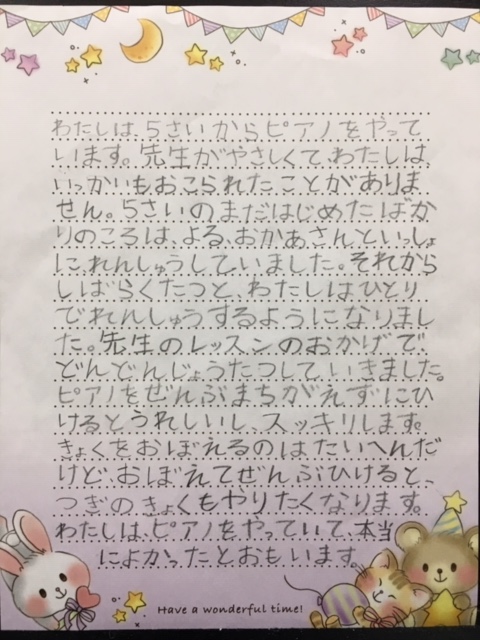 わたしは、5さいからピアノをやって
います。先生がやさしくて、わたしは、
いっかいもおこられたことがありま
せん。5さいのまだはじめたばか
りのころは、よる、おかあさんといっしょ
に、れんしゅうしていました。それから
しばらくたつと、わたしはひとり
でれんしゅうするようになりまし
た。先生のレッスンのおかげで、
どんどんじょうたつしていきました。
ピアノをぜんぶまちがえずにひ
けるとうれしいし、スッキリします。
きょくをおぼえるのはたいへんだ
けど、おぼえてぜんぶひけると、
つぎのきょくもやりたくなります。
わたしは、ピアノをやっていて、本当
によかったとおもいます。
Have a wonderful time!